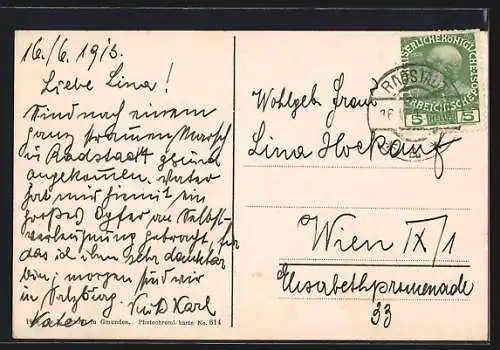 16./6. 1913.
Liebe Lina!
Sind nach einem
ganz strammen Marsch
in Radstadt gesund
angekommen. Vater
hat mir hiemit ein
großes Opfer an Selbst-
verleugnung gebracht, für
das ich ihm sehr dankbar
bin; morgen sind wir
in Salzburg. Karl
Vater
in Gmunden. Photochromi-karte No. 614
KAISERLICHE KÖNIGLICHE
5 5
RADSTADT
16
Wohlgeb Frau
Lina Hockauf
Wien IX/1
Elisabethpromenade
33